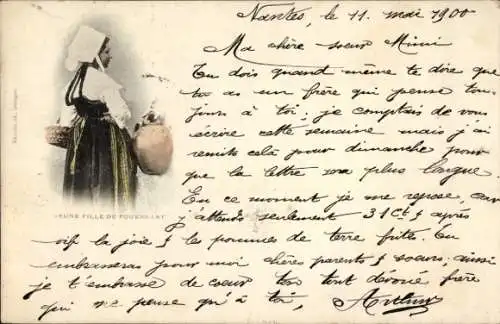 Nantes, le 11. mai 1900
Ma chère sœur Mimi
Tu dois quand même te dire que
tu as un frère qui pense tou-
jours à toi; je comptais de vous
écrire cette semaine mais j'ai
remits celà pour dimanche pour
que la lettre sera plus longue.
En ce moment je me repose, car
j'attends seulement 31 Ct & après
vif la joie & les pommes de terre frites. Tu
embrasseras pour moi chères parents & soeurs, aussi
je t'embasse de coeur ton tout dévoué frère
qui ne pense qu'à toi, Arthur
JEUNE FILLE DE FOUESNANT